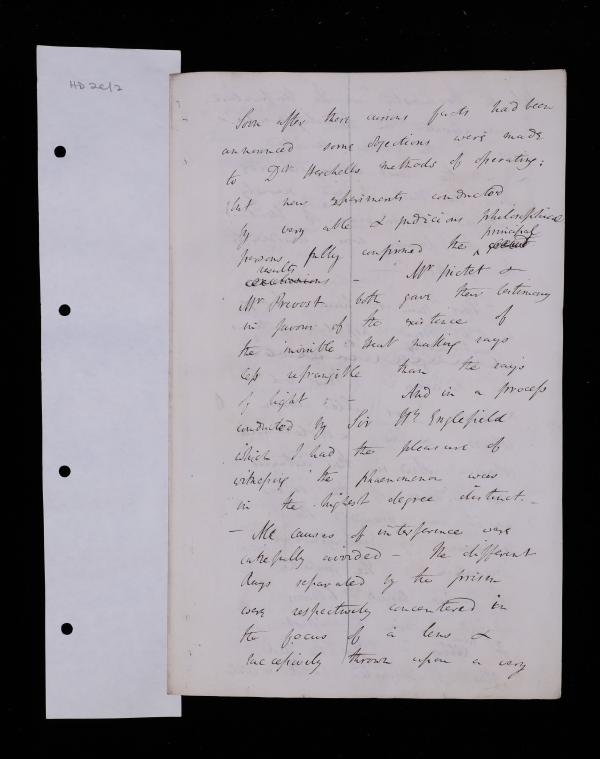 HD 2c/2
Soon after these curious facts had been
announced some objections were made
to Dr Herchells methods of operating;
but new experiments conducted
by very able & judicious philosophical
principal
persons fully confirmed the
results
- Mr Pictet &
Mr Prevost both gave their testimony
in favour of the existence of
the invisible heat making rays
less refrangible than the rays
of light: - And in a process
conducted by Sir Hy Englefield
which I had the pleasure of
witnessing the phaenomenon was
in the highest degree distinct. -
- All causes of interference were
carefully avoided - The different
Rays separated by the prism
were respectively concentered in
the focus of a lens &
successively thrown upon a very